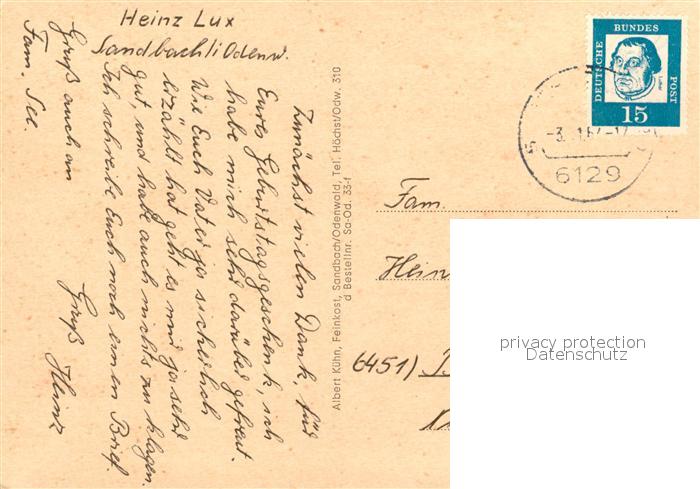 Heinz Lux
Sandbach/i Odenw.
Zunächst vielen Dank, für
Eure Geburtstagsgeschenk, ich
habe mich sehr darüber gefreut.
Wie Euch Vater ja sicherlich
erzählt hat geht es mir ja sehr
gut, und habe auch nichts zu klagen.
Ich schreibe Euch noch einen Brief.
Gruß auch an
Fam. See.
Gruß Heinz
Albert Kühn, Feinkost, Sandbach/Odenwald, Tel. Höchst/Odw. 310
d Bestellnr. Sa-Od. 33-f
DEUTSCHE
BUNDES
POST
Luther
15
6129
Fam.
Hein
6451)
privacy protection
Datenschutz